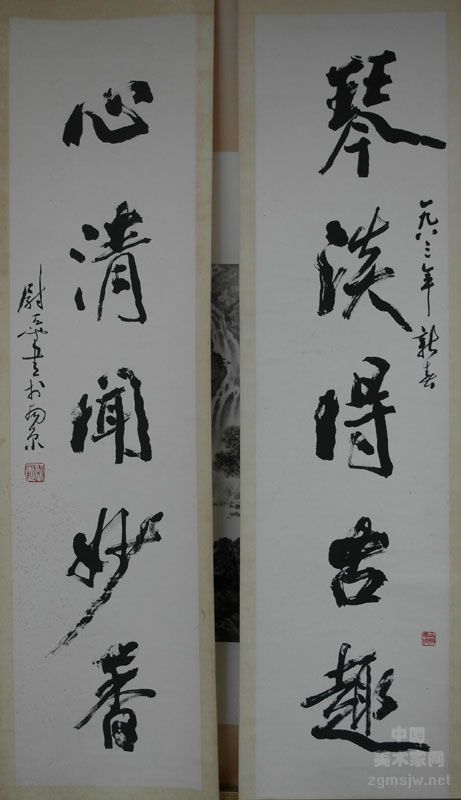 琴淡得古趣
一九八三年新春
心清闻妙香
尉天池书于南京
中国
美术家网
zgmsjw.net